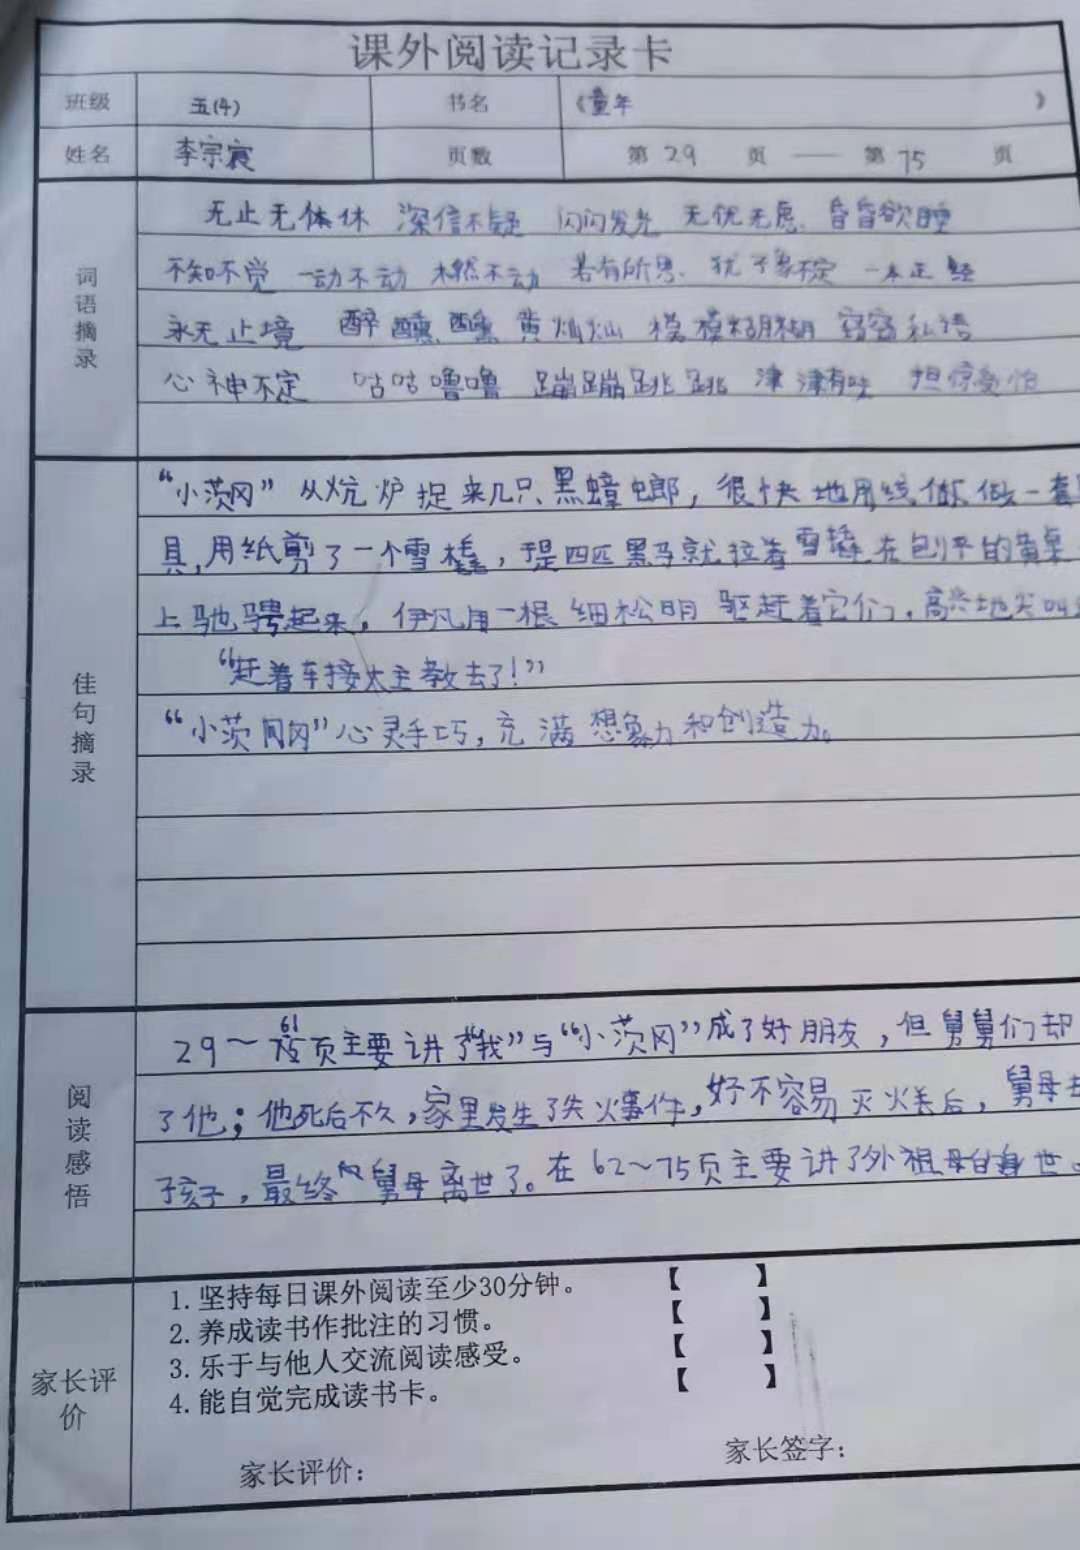 课外阅读记录卡
班级 五(4) 书名 《童年 》
姓名 李宗宸 页数 第 29 页 —— 第 75 页
词语摘录
无止无休 深信不疑 闪闪发光 无忧无虑 昏昏欲睡
不知不觉 一动不动 木然不动 若有所思 犹予象不定 一本正经
永无止境 醉醺醺 黄灿灿 模模糊糊 窃窃私语
心神不定 咕咕噜噜 蹦蹦跳跳 津津有味 担惊受怕
佳句摘录
“小茨冈”从炕炉捉来几只黑蟑螂,很快地用线做一套
具,用纸剪了一个雪橇,于是四匹黑马就拉着雪橇在刨平的黄桌
上驰骋起来,伊凡用一根细松明驱赶着它们,高兴地尖叫
“赶着车接大主教去了!”
“小茨冈”心灵手巧,充满想象力和创造力。
阅读感悟
29~61页主要讲了“我”与“小茨冈”成了好朋友,但舅舅们却
了他;他死后不久,家里发生了失火事件,好不容易灭火后,舅母
孩子,最终舅母离世了。在62~75页主要讲了外祖母的身世。
家长评价
1.坚持每日课外阅读至少30分钟。 【 】
2.养成读书作批注的习惯。 【 】
3.乐于与他人交流阅读感受。 【 】
4.能自觉完成读书卡。 【 】
家长评价: 家长签字: